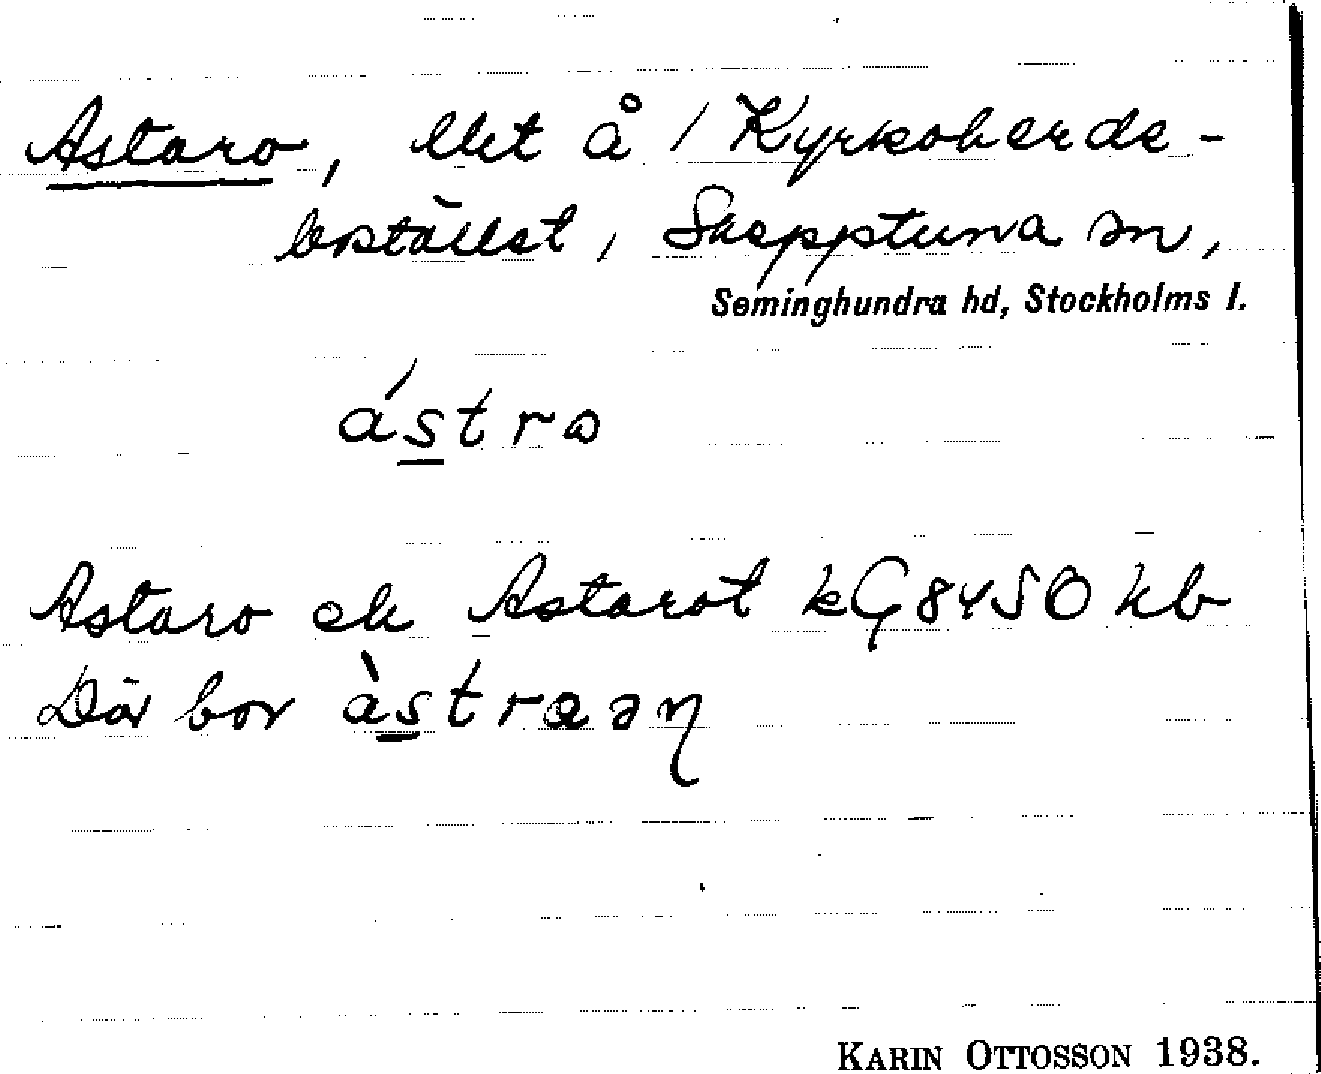 Astaro, lht å / Kyrkoherde-
bostället, Skepptuna sn,
Seminghundra hd, Stockholms l.
ástrω
Astaro ek Astarot kG 8450 hb
Där bor àstraəη
KARIN OTTOSSON 1938.